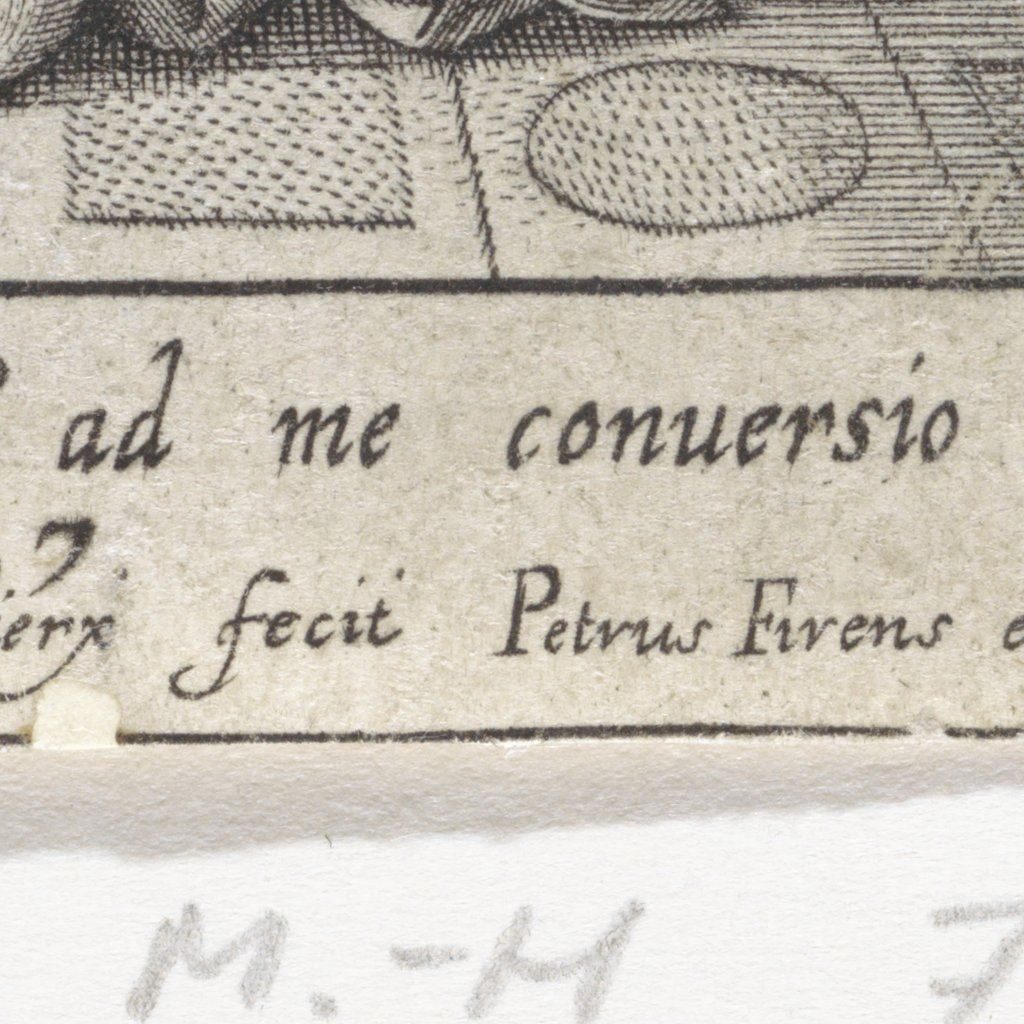 ad me conuersio
ierx fecit Petrus Firens e
M.-H 7